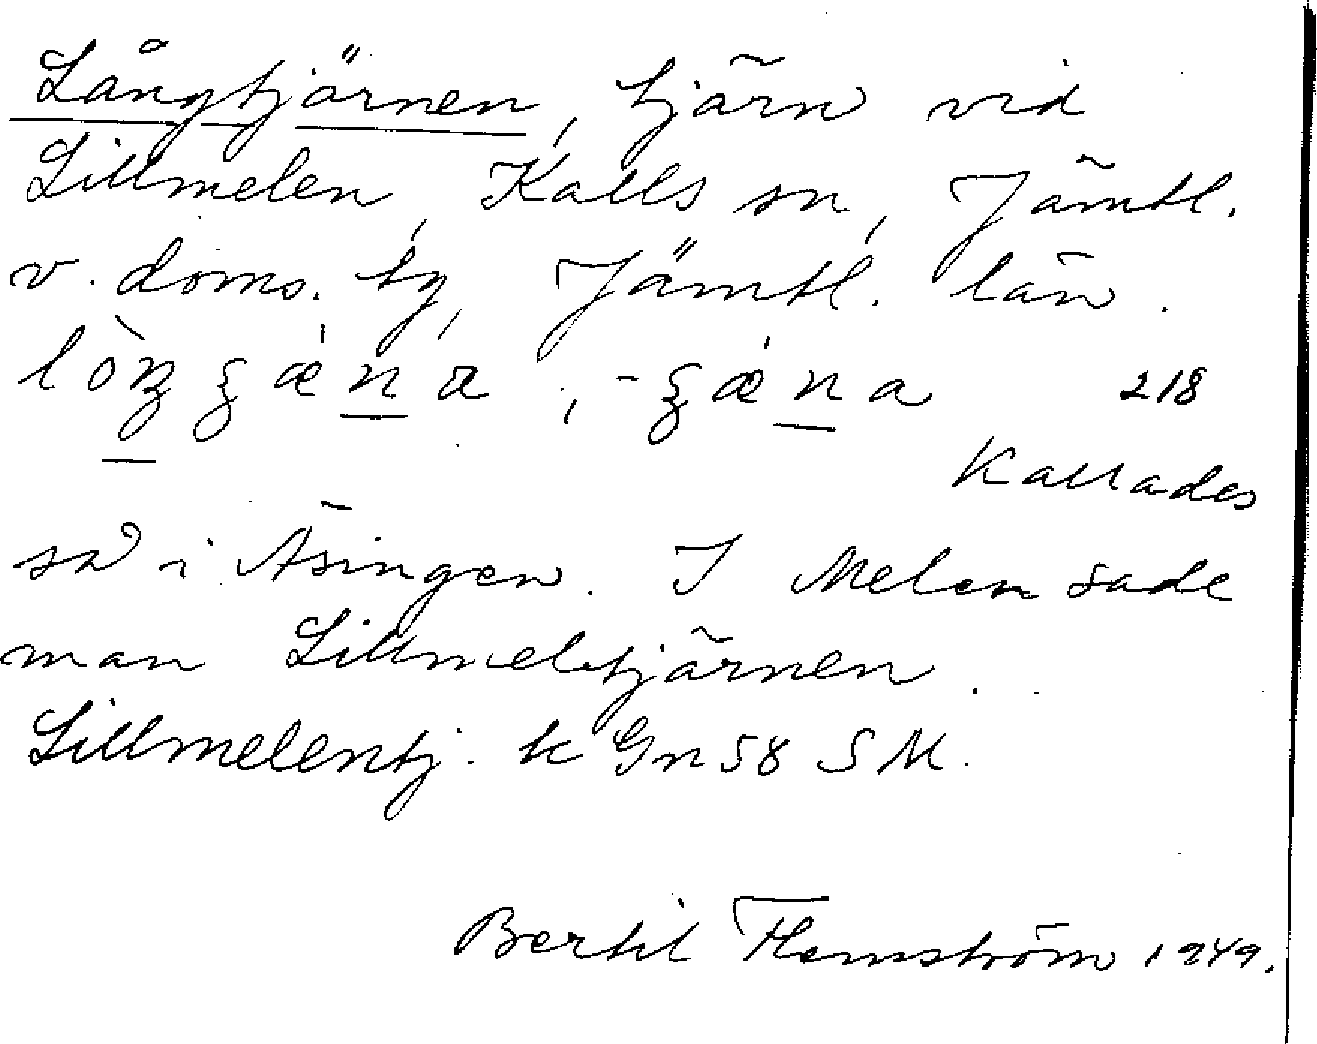 Långtjärnen, tjärn vid
Lillmelen, Kalls sn, Jämtl.
v. doms. tg, Jämtl. län.
218
Kallades
så i Äsingen. I Melen sade
man Lillmeltjärnen.
Lillmelentj. k Gn 58 SM.
Bertil Flemström 1949.